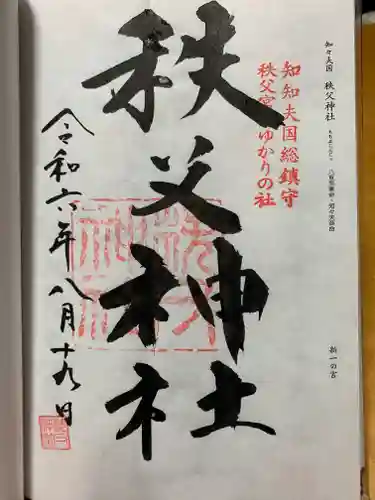 知々夫国 秩父神社
新一の宮
知知夫国総鎮守
秩父宮ゆかりの社
秩父神社
令和六年八月十九日